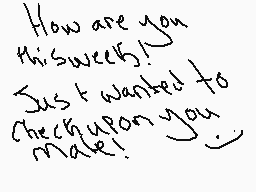 How are you
this week!
Just wanted to
check up on you
mate!